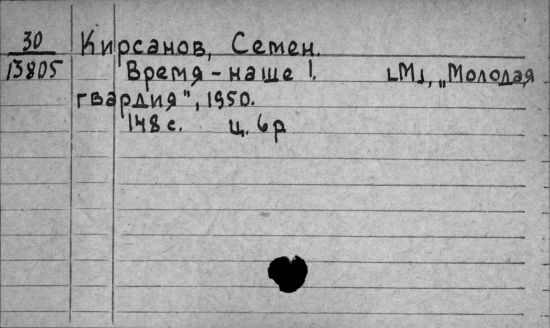 30 Кирсанов, Семен.
13805 Время - наше! [М], „Молодая
гвардия", 1950.
148 с. ц. 6 р